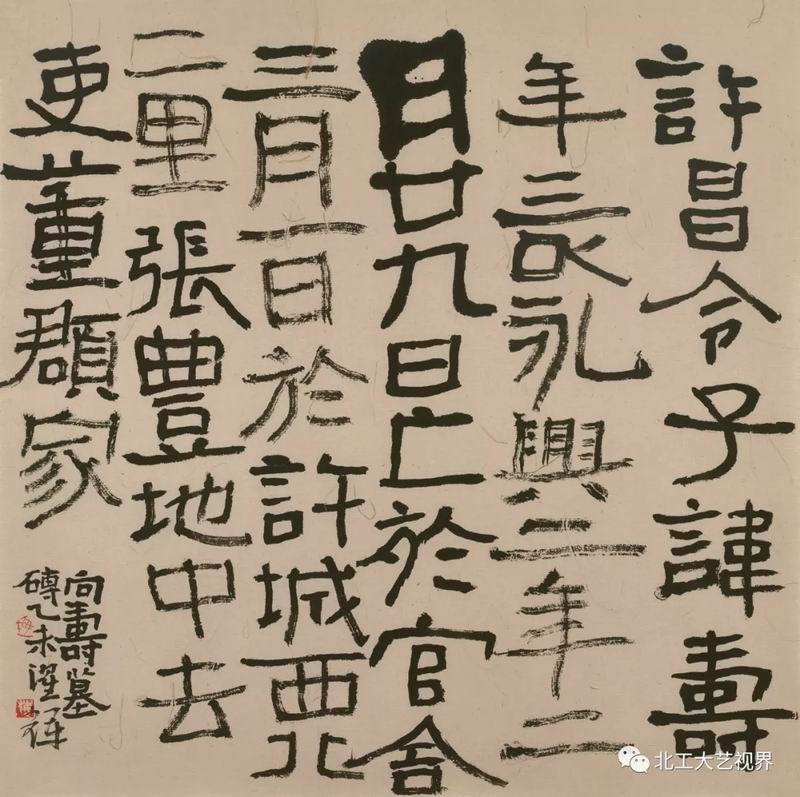 許昌令子諱壽
年永興二年二
月廿九日亡於官舍
三月一日於許城西北
二里張豊地中去
吏董家
向壽墓
磚乙未
北工大艺视界